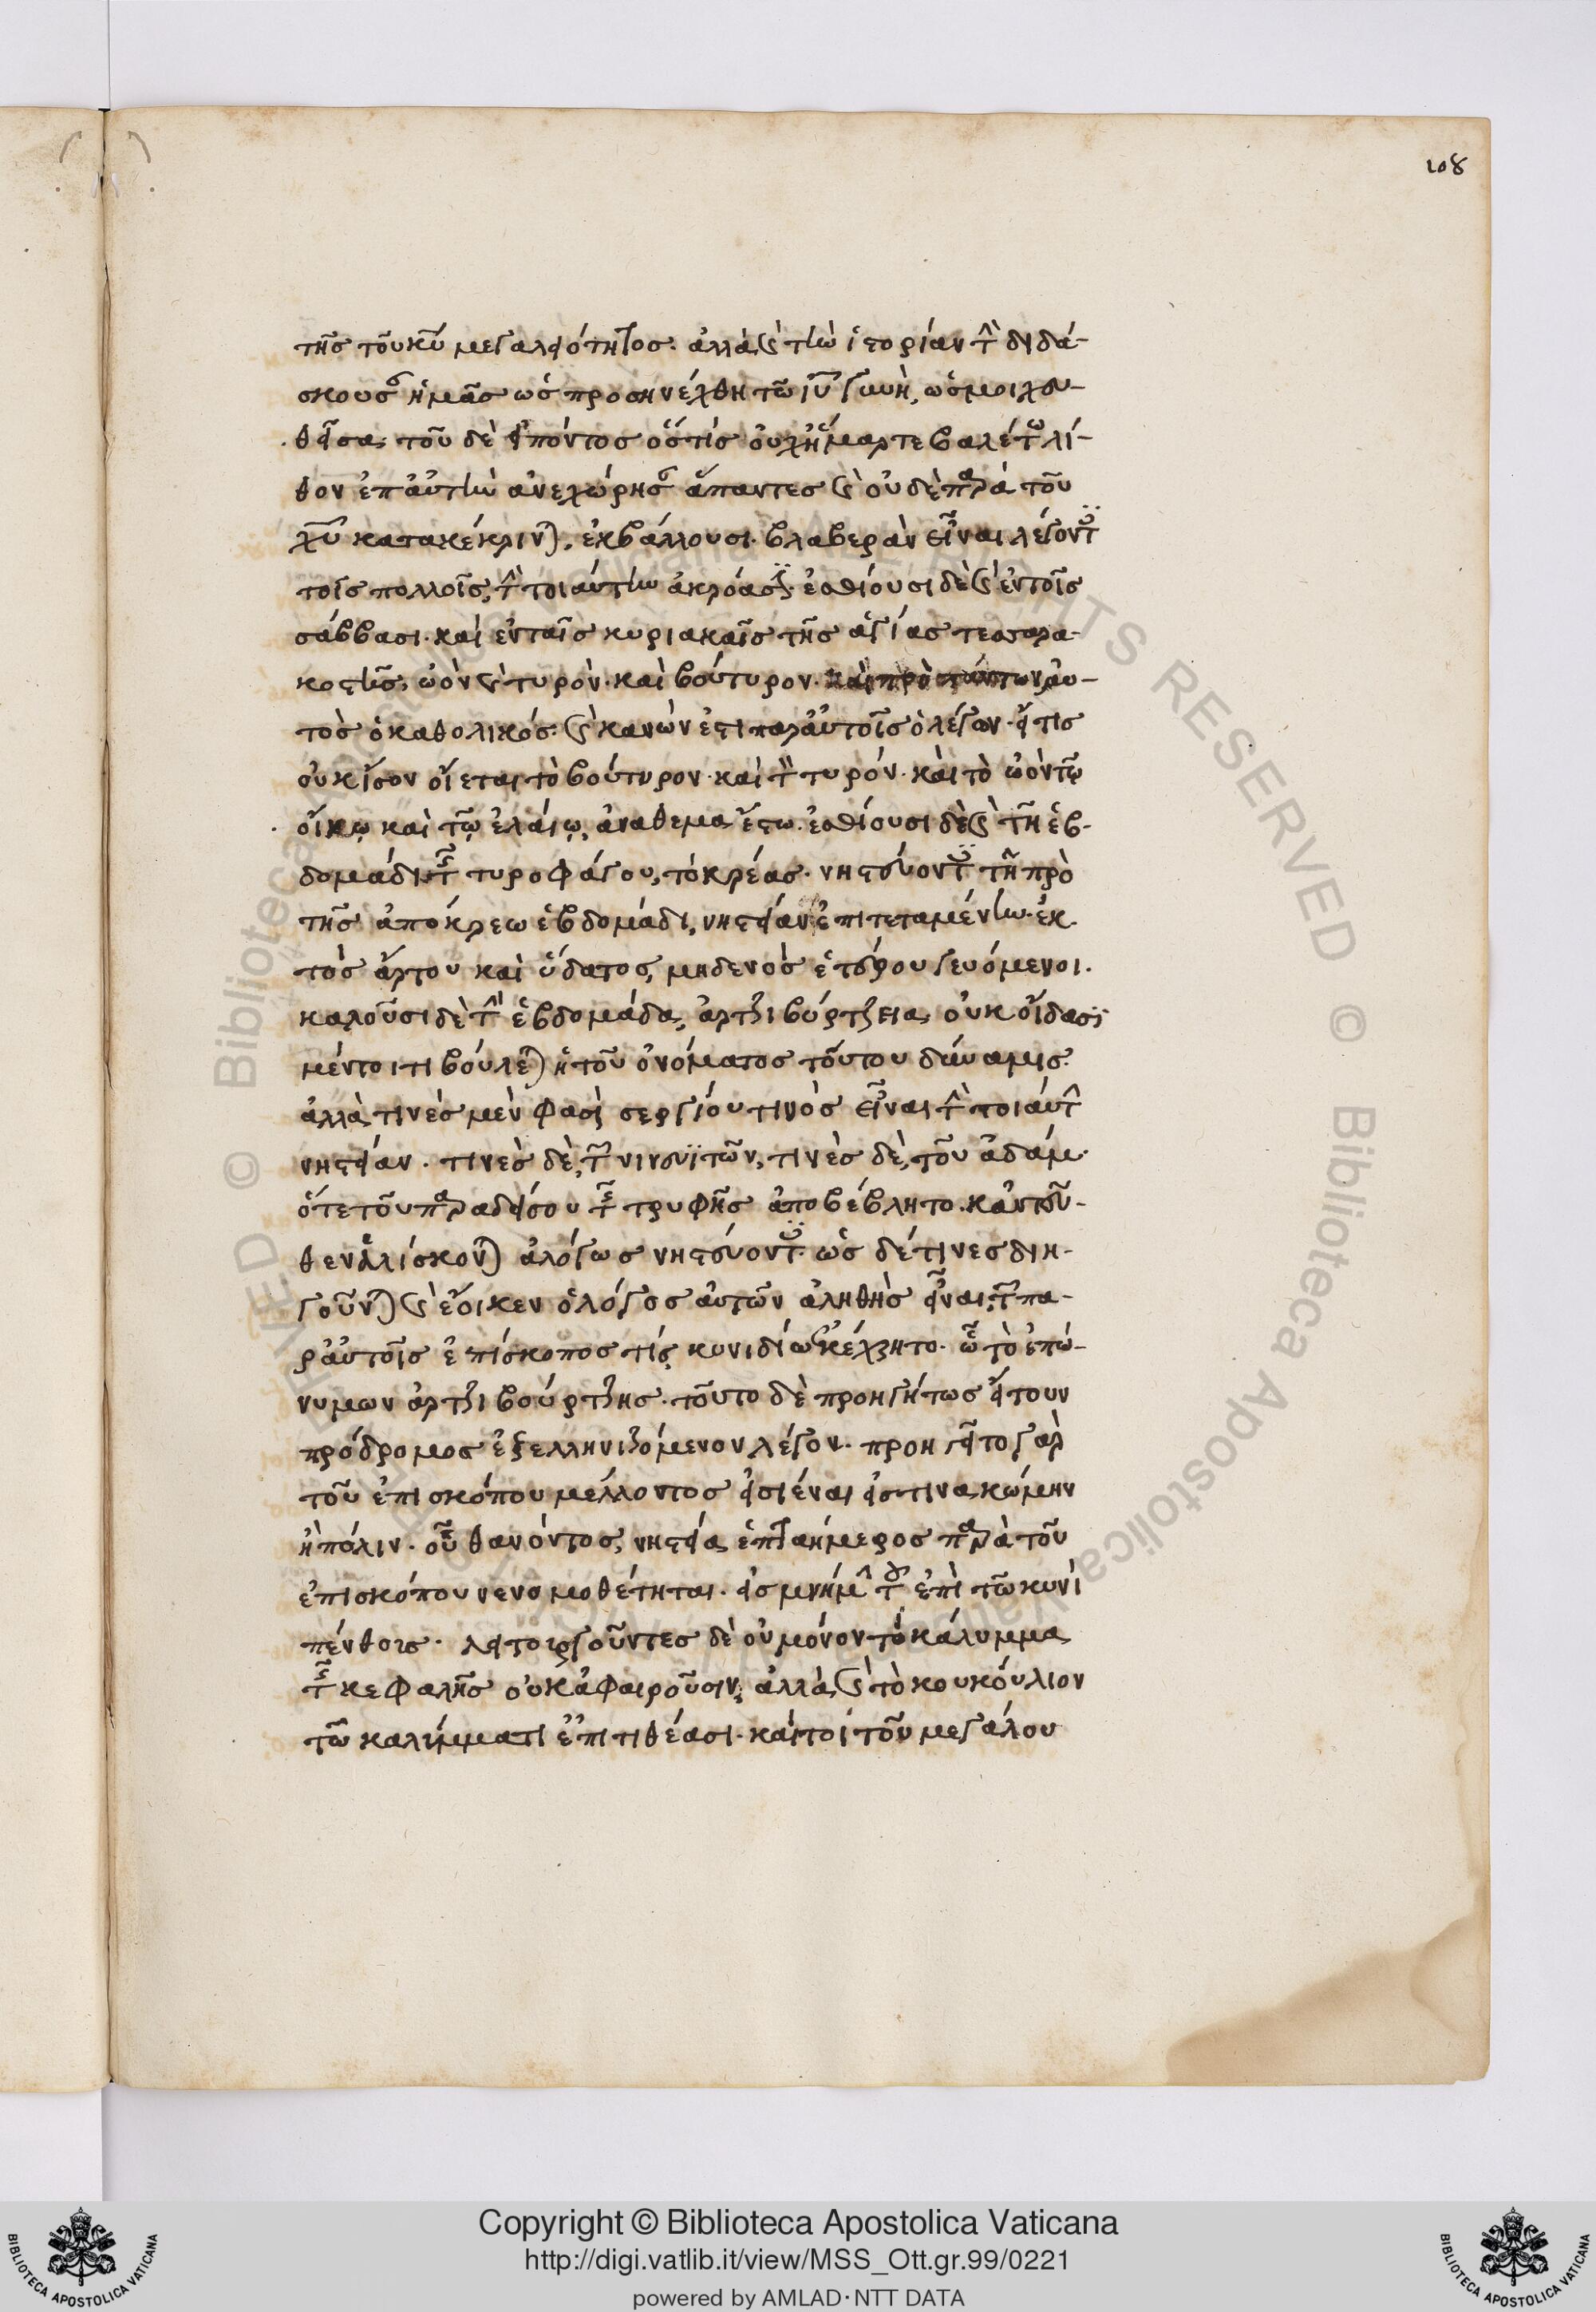 108
τῆς τοῦ κυ μεγαλειότητος· ἀλλὰ καὶ τὴν ἱστορίαν τὴν διδά-
σκουσαν ἡμᾶς ὡς προσηνέχθη τῶ ιυ γυνὴ, ὡς μοιχευ-
θεῖσα, τοῦ δὲ εἰπόντος ὅστις οὐχ ἥμαρτε βαλέτω λί-
θον ἐπ αὐτὴν ἀνεχώρησαν ἅπαντες καὶ οὐδὲ παρὰ τοῦ
χυ κατακέκριται, ἐκβάλλουσι· βλαβερὰν εἶναι λέγοντες
τοῖς πολλοῖς, τὴν τοιαύτην ἀκρόασιν· ἐσθίουσι δὲ καὶ ἐν τοῖς
σάββασι· καὶ ἐν ταῖς κυριακαῖς τῆς ἁγίας τεσσαρα-
κοστῆς, ὠὸν καὶ τυρὸν· καὶ βούτυρον· καὶ πρὸ πάντων αὐ-
τὸς ὁ καθολικός· καὶ κανών ἐστι παρ αὐτοῖς ὁ λέγων· εἴ τις
οὐκ ἴσον οἴεται τὸ βούτυρον· καὶ τὸν τυρόν· καὶ τὸ ὠὸν τῷ
οἴκῳ καὶ τῷ ἐλαίῳ, ἀναθεμα ἔστω· ἐσθίουσι δὲ καὶ τῆ ἑβ-
δομάδι τῆς τυροφάγου, τὸ κρέας· νηστεύοντες τῆ πρὸ
τῆς ἀπόκρεω ἑβδομάδι, νηστείαν ἐπιτεταμένην· ἐκ-
τὸς ἄρτου καὶ ὕδατος, μηδενὸς ἑτέρου γευόμενοι.
καλοῦσι δὲ τὴν ἑβδομάδα, ἀρτζιβύρτζεια, οὐκ οἴδασι
μέντοι τι βούλεται ἡ τοῦ ὀνόματος τούτου δύναμις.
ἀλλὰ τινὲς μὲν φασὶ σεργίου τινὸς εἶναι τὴν τοιαύτην
νηστείαν· τινὲς δὲ, τῶν νινευϊτῶν, τινὲς δὲ, τοῦ ἀδάμ·
ὅτε τοῦ παραδείσου τῆς τρυφῆς ἀποβέβλητο· κἀντεῦ-
θεν ἁλίσκονται ἀλόγως νηστεύοντες· ὡς δέ τινες διη-
γοῦνται καὶ ἔοικεν ὁ λόγος αὐτῶν ἀληθὴς εἶναι, τῶν πα-
ρ αὐτοῖς ἐπίσκοπος τίς κυνιδίω ἐκέχρητο· ὧ τὸ ἐπώ-
νυμων ἀρτζιβούρτζης· τοῦτο δὲ προηγήτως εἴτουν
πρόδρομος ἐξελληνιζόμενον λέγον· προηγεῖτο γὰρ
τοῦ ἐπισκόπου μέλλοντος εἰσιέναι εἰς τινα κώμην
ἢ πόλιν· οὗ θανόντος, νηστεία ἑπταήμερος παρὰ τοῦ
ἐπισκόπου νενομοθέτηται· εἰς μνήμην τοῦ ἐπὶ τῶ κυνὶ
πένθους· λειτουργοῦντες δὲ οὐ μόνον τὸ κάλυμμα
τῆς κεφαλῆς οὐκ ἀφαιροῦσιν, ἀλλὰ καὶ τὸ κουκούλιον
τῶ καλύμματι ἐπιτιθέασι· καίτοι τοῦ μεγάλου
Copyright © Biblioteca Apostolica Vaticana
http://digi.vatlib.it/view/MSS_Ott.gr.99/0221
powered by AMLAD·NTT DATA